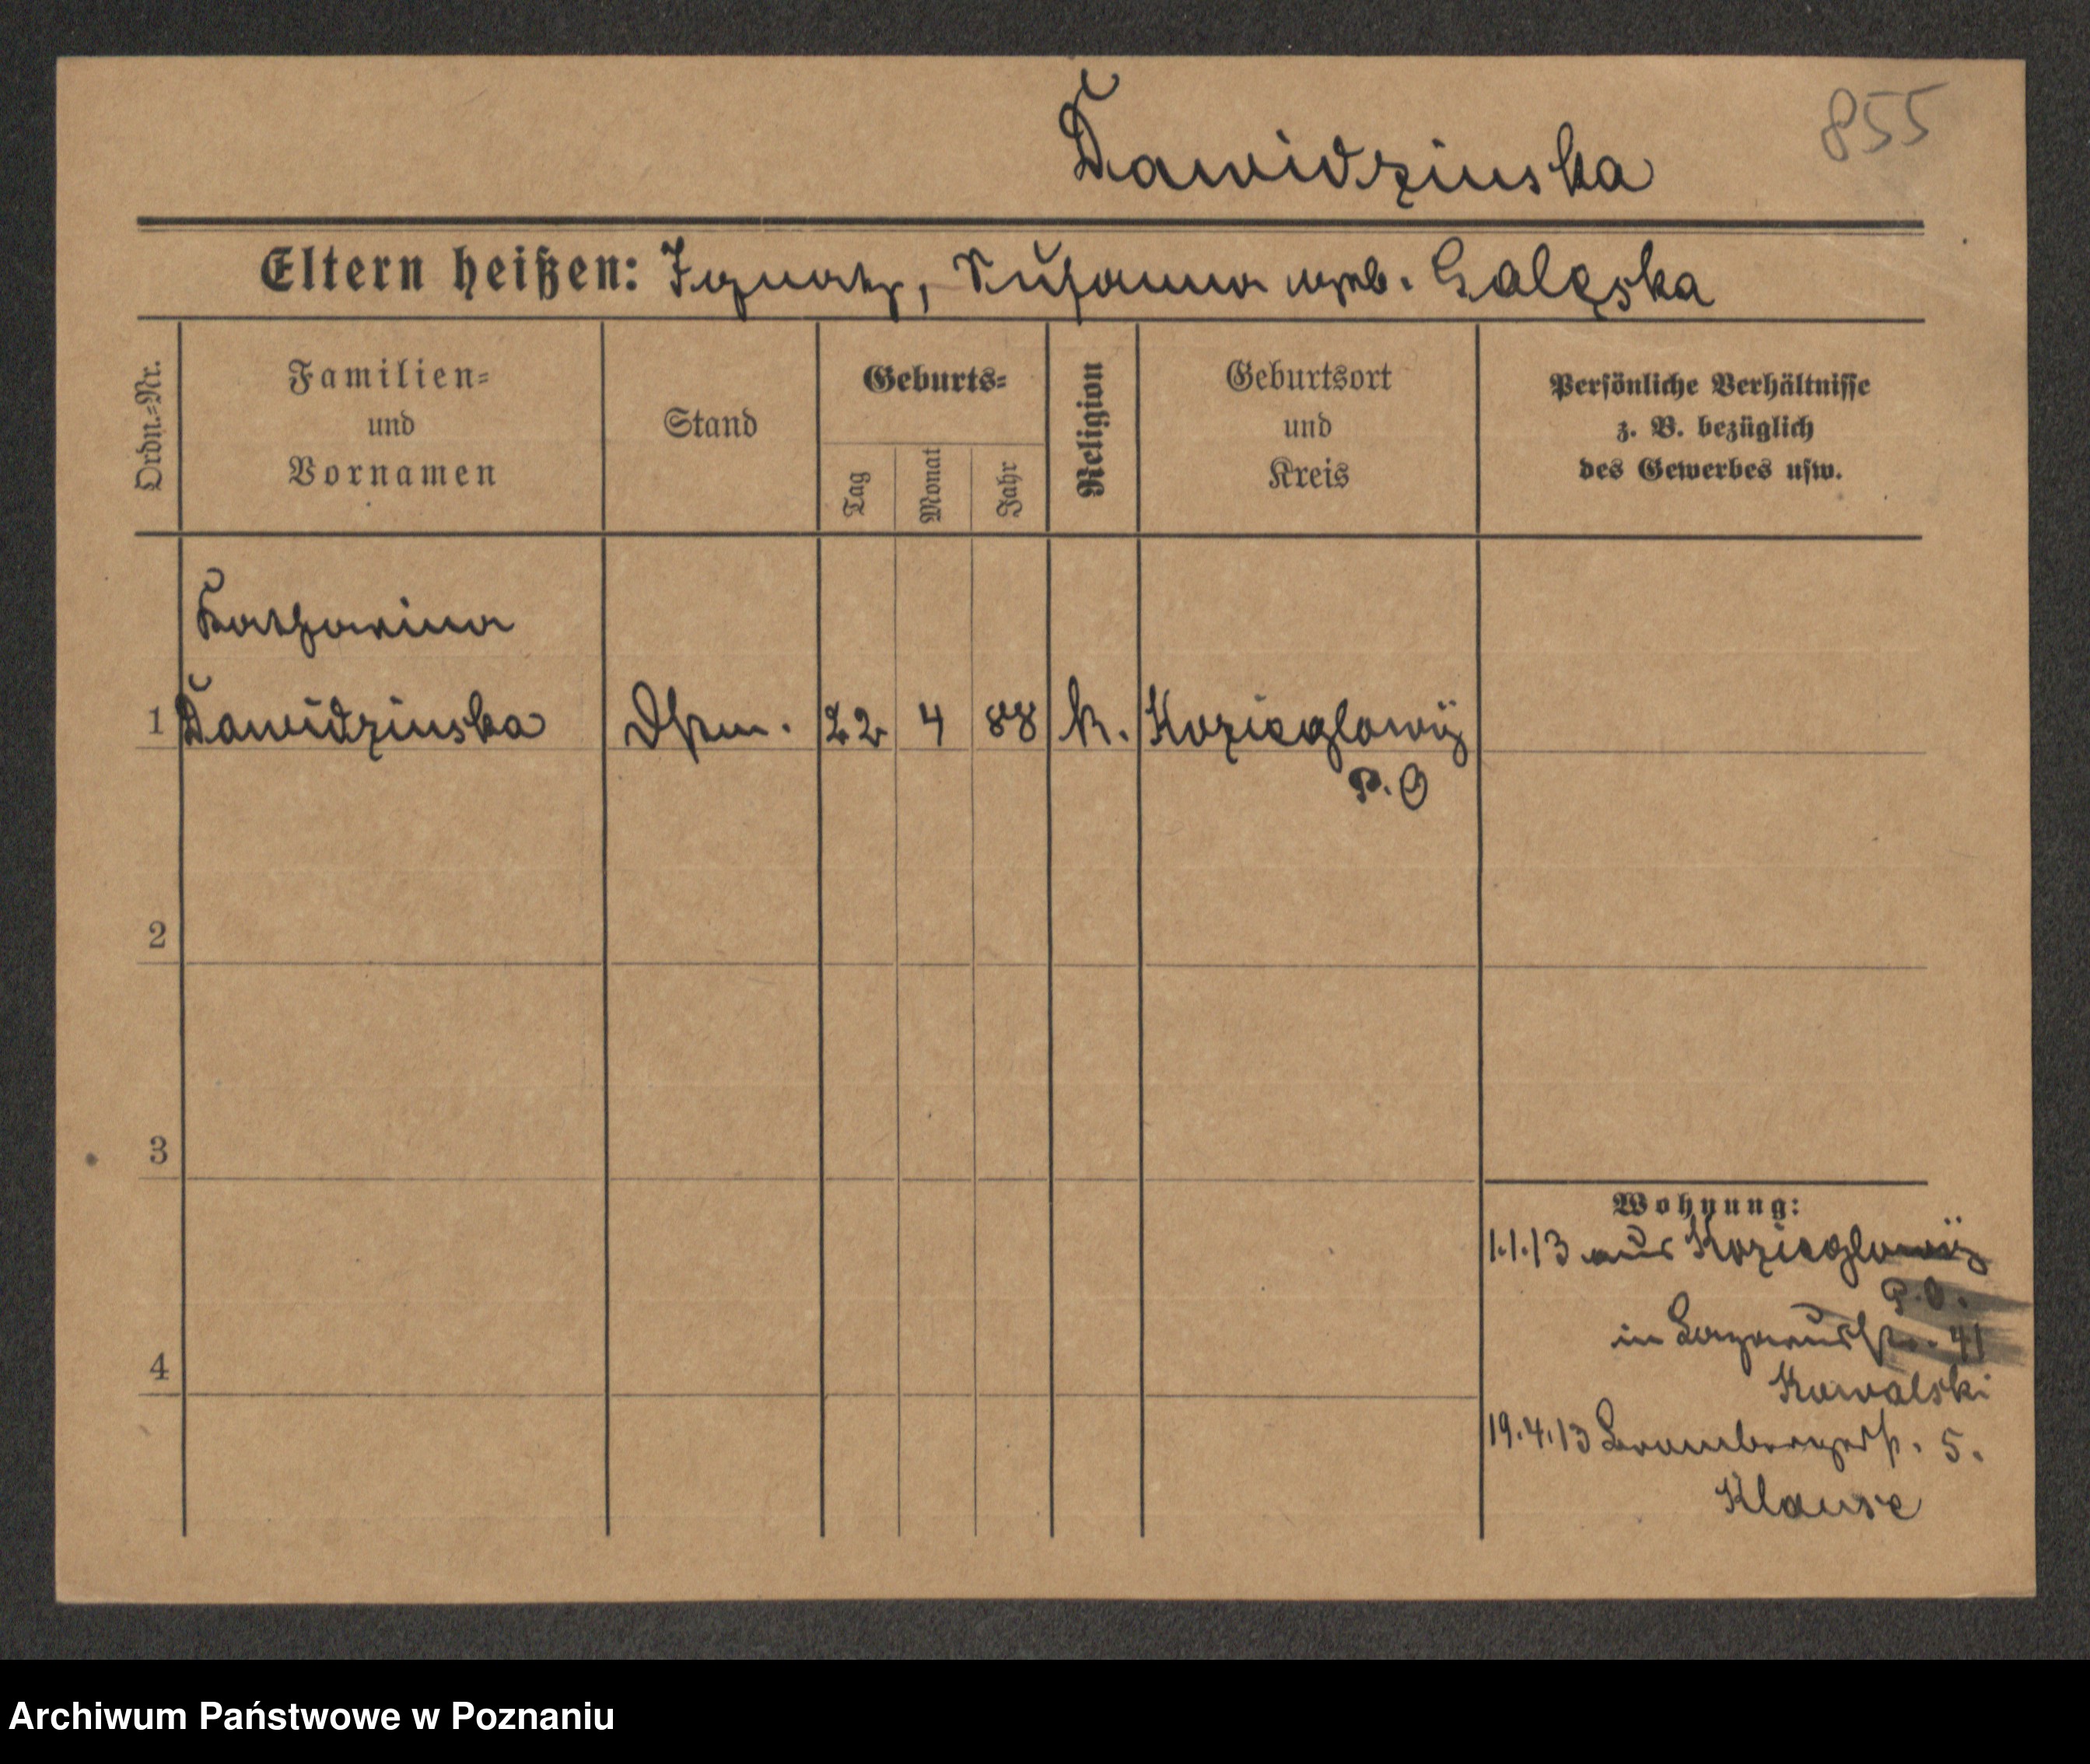 Dawidzinska
855
Eltern heißen: Ignatz, Susanna geb. Galęska
Ordn.=Nr.
Familien=
und
Vornamen
Stand
Geburts=
Tag
Monat
Jahr
Religion
Geburtsort
und
Kreis
Persönliche Verhältnisse
z. B. bezüglich
des Gewerbes usw.
Katharina
1 Dawidzinska
22 4 88 k. Kozieglowÿ
P. O
2
3
4
Wohnung:
1.1.13 aus Kozieglowÿ
P.O.
in Lazarusstr. 41
Kowalski
19.4.13 5.
Klause
Archiwum Państwowe w Poznaniu